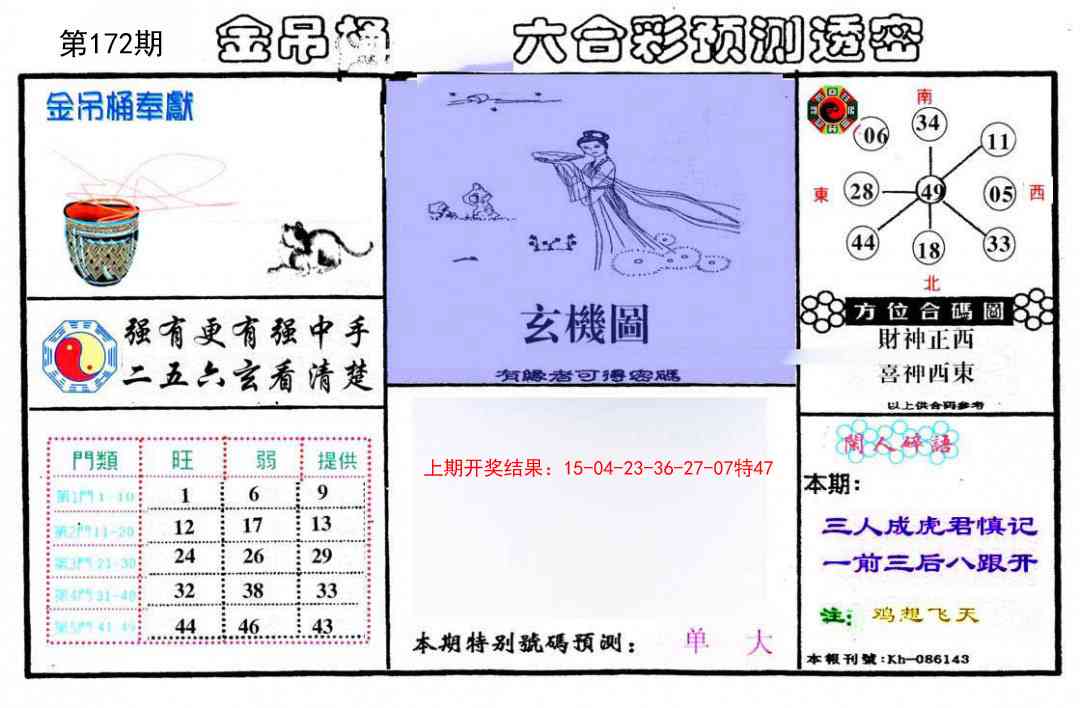 第172期
金吊桶 六合彩预测透密
金吊桶奉獻
强有更有强中手
二五六玄看清楚
門類 旺 弱 提供
第1門1-10 1 6 9
第2門11-20 12 17 13
第3門21-30 24 26 29
第4門31-40 32 38 33
第5門41-49 44 46 43
玄機圖
有緣者可得密碼
上期开奖结果：15-04-23-36-27-07特47
本期特别號碼预测： 单 大
南
06 34 11
東 28 49 05 西
44 18 33
北
方位合碼圖
財神正西
喜神西東
以上供合码参考
閑人碎語
本期：
三人成虎君慎记
一前三后八跟开
注：鸡想飞天
本報刊號：Kh-086143